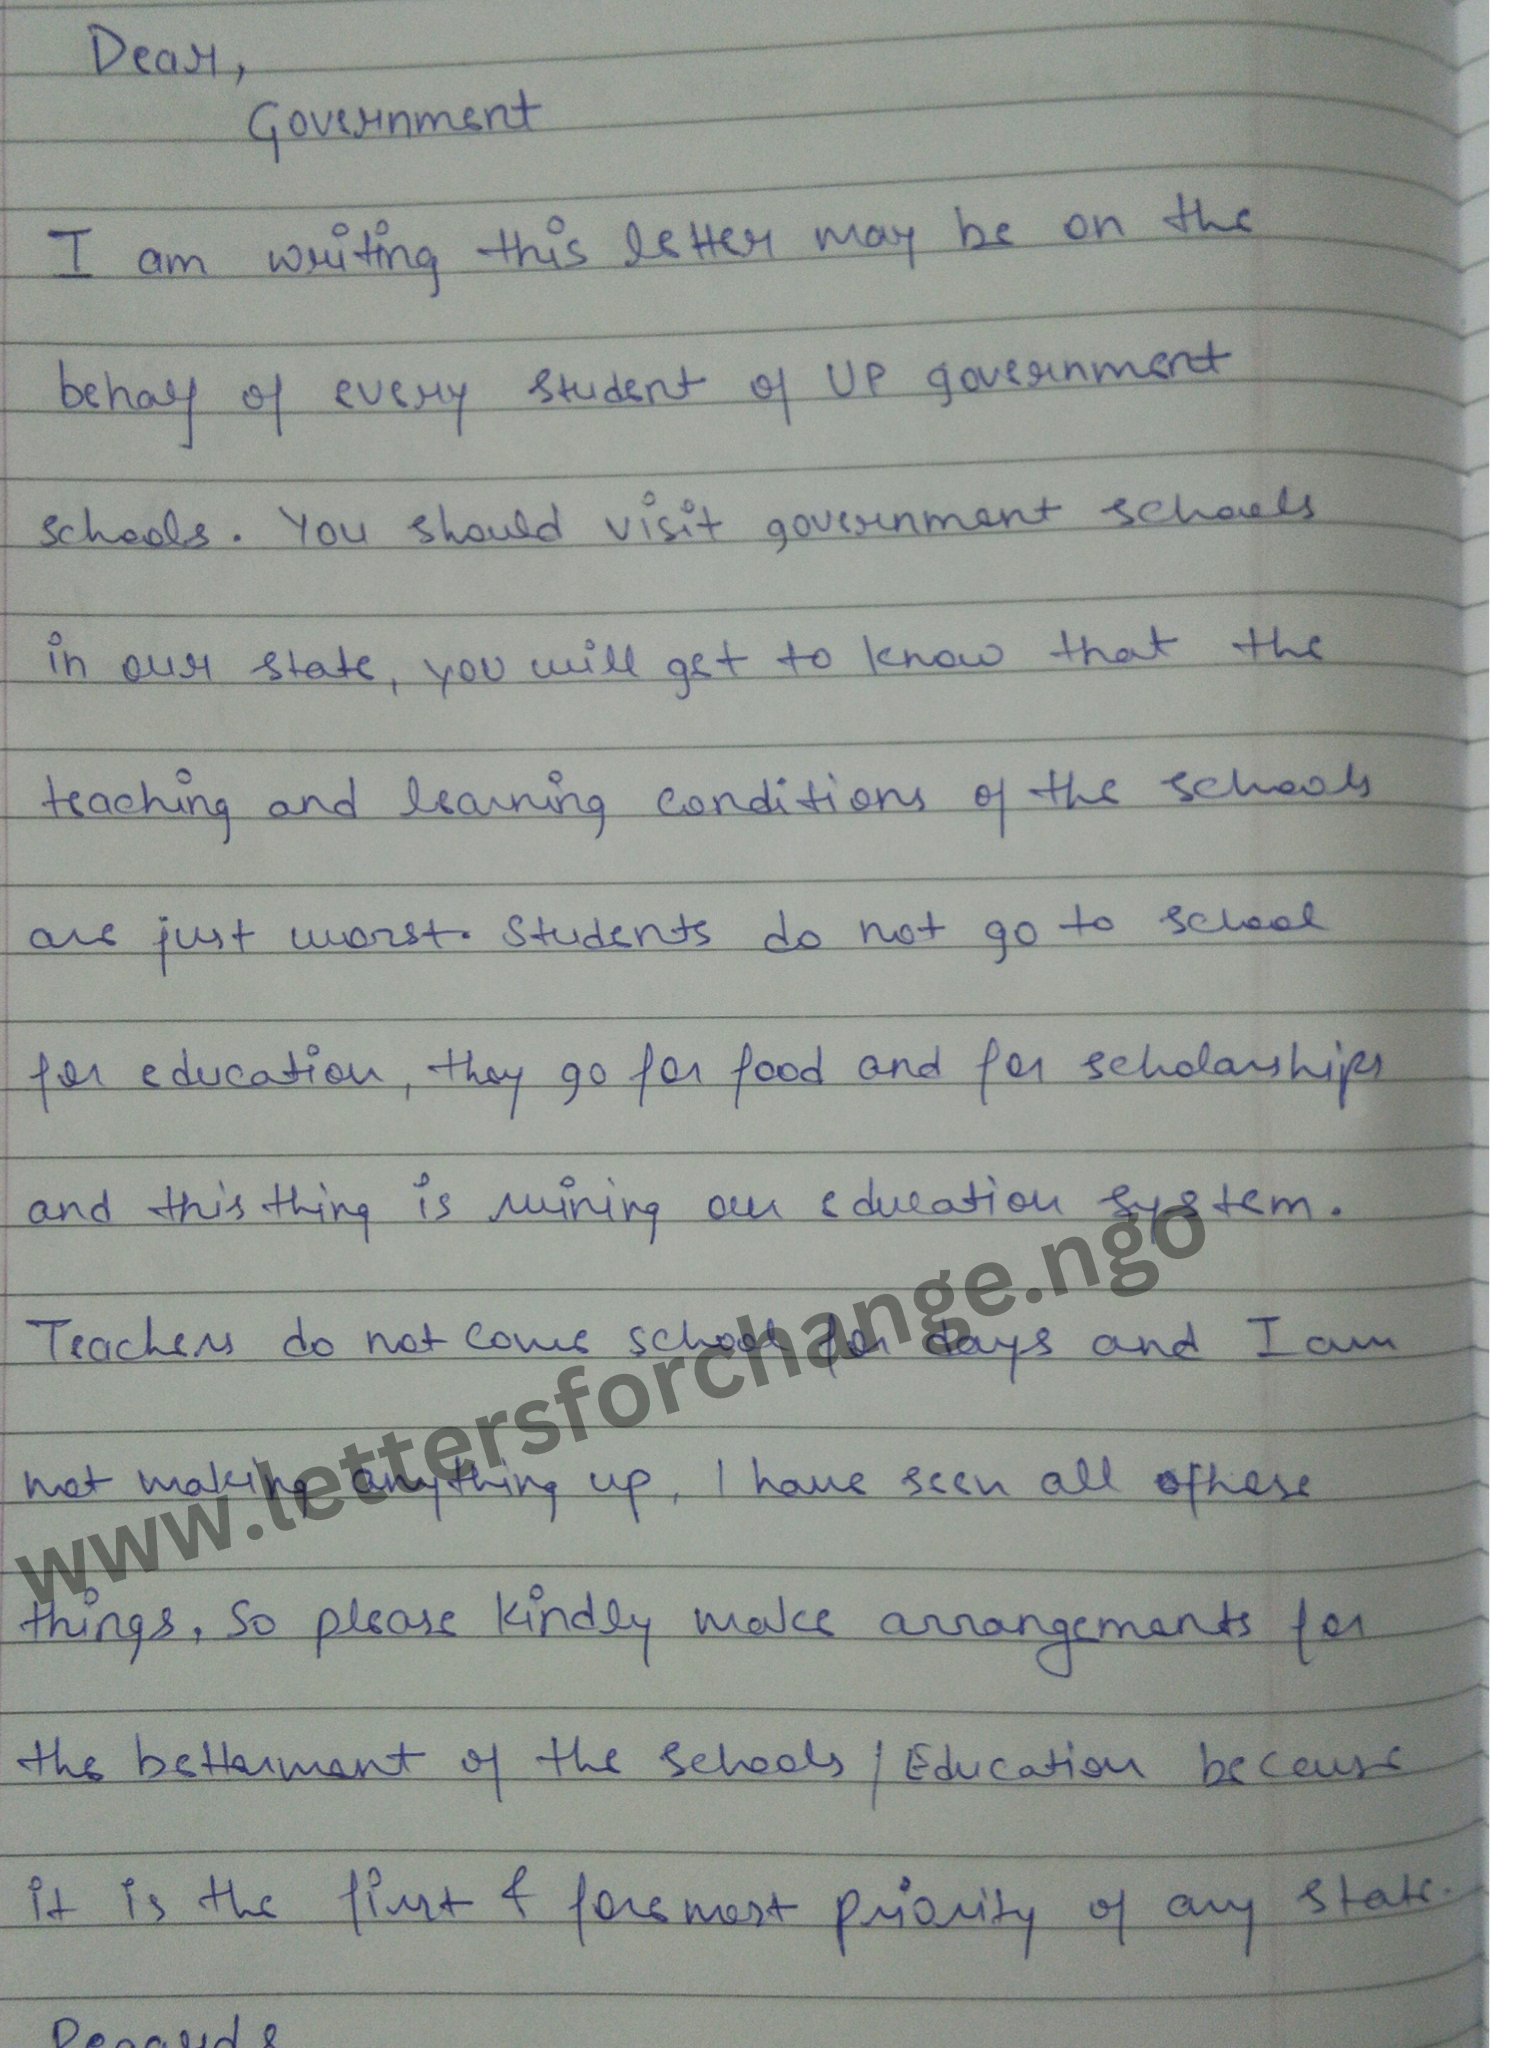 Dear,
Government
I am writing this letter may be on the
behalf of every student of UP government
schools. You should visit government schools
in our state, you will get to know that the
teaching and learning conditions of the schools
are just worst. Students do not go to school
for education, they go for food and for scholarships
and this thing is ruining our education system.
Teachers do not come school for days and I am
not making anything up, I have seen all ofhese
things, So please kindly make arrangements for
the betterment of the schools / Education because
it is the first & foremost priority of any state.
Regards
www.lettersforchange.ngo